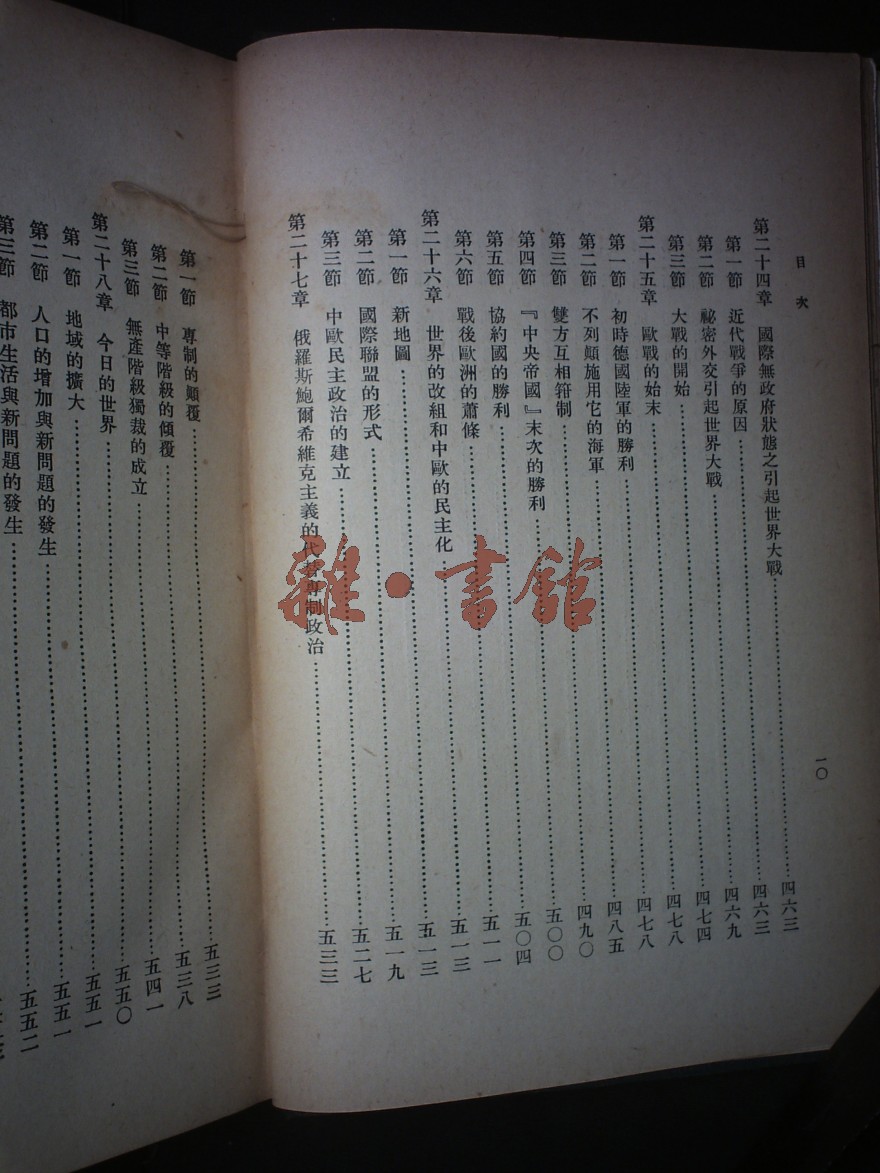 目次
一〇
第二十四章 國際無政府狀態之引起世界大戰……四六三
第一節 近代戰爭的原因……四六三
第二節 祕密外交引起世界大戰……四六九
第三節 大戰的開始……四七四
第二十五章 歐戰的始末……四七八
第一節 初時德國陸軍的勝利……四七八
第二節 不列顛施用它的海軍……四八五
第三節 雙方互相箝制……四九〇
第四節 『中央帝國』末次的勝利……五〇〇
第五節 協約國的勝利……五〇四
第六節 戰後歐洲的蕭條……五一一
第二十六章 世界的改組和中歐的民主化……五一三
第一節 新地圖……五一三
第二節 國際聯盟的形式……五一九
第三節 中歐民主政治的建立……五二七
第二十七章 俄羅斯鮑爾希維克主義的代替專制政治……五三三
第一節 專制的顛覆……五三三
第二節 中等階級的傾覆……五三八
第三節 無產階級獨裁的成立……五四一
第二十八章 今日的世界……五五〇
第一節 地域的擴大……五五一
第二節 人口的增加與新問題的發生……五五一
第三節 都市生活與新問題的發生……五五二
雜·書館